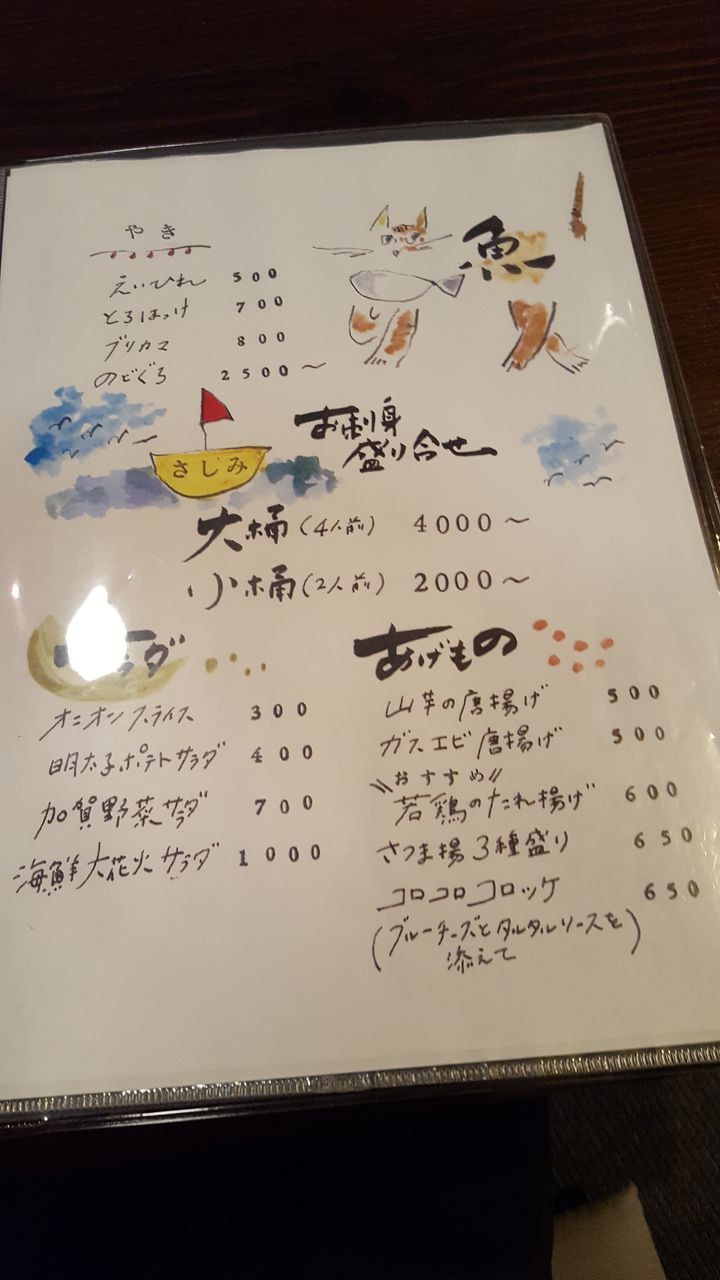 魚
やき
えいひれ 500
とろほっけ 700
ブリカマ 800
のどぐろ 2500～
さしみ
お刺身
盛り合せ
大桶(4人前) 4000～
小桶(2人前) 2000～
ダ
オニオンスライス 300
明太子ポテトサラダ 400
加賀野菜サラダ 700
海鮮大花火サラダ 1000
あげもの
山芋の唐揚げ 500
ガスエビ唐揚げ 500
\\おすすめ//
若鶏のたれ揚げ 600
さつま揚3種盛り 650
コロコロコロッケ 650
(ブルーチーズとタルタルソースを
添えて)